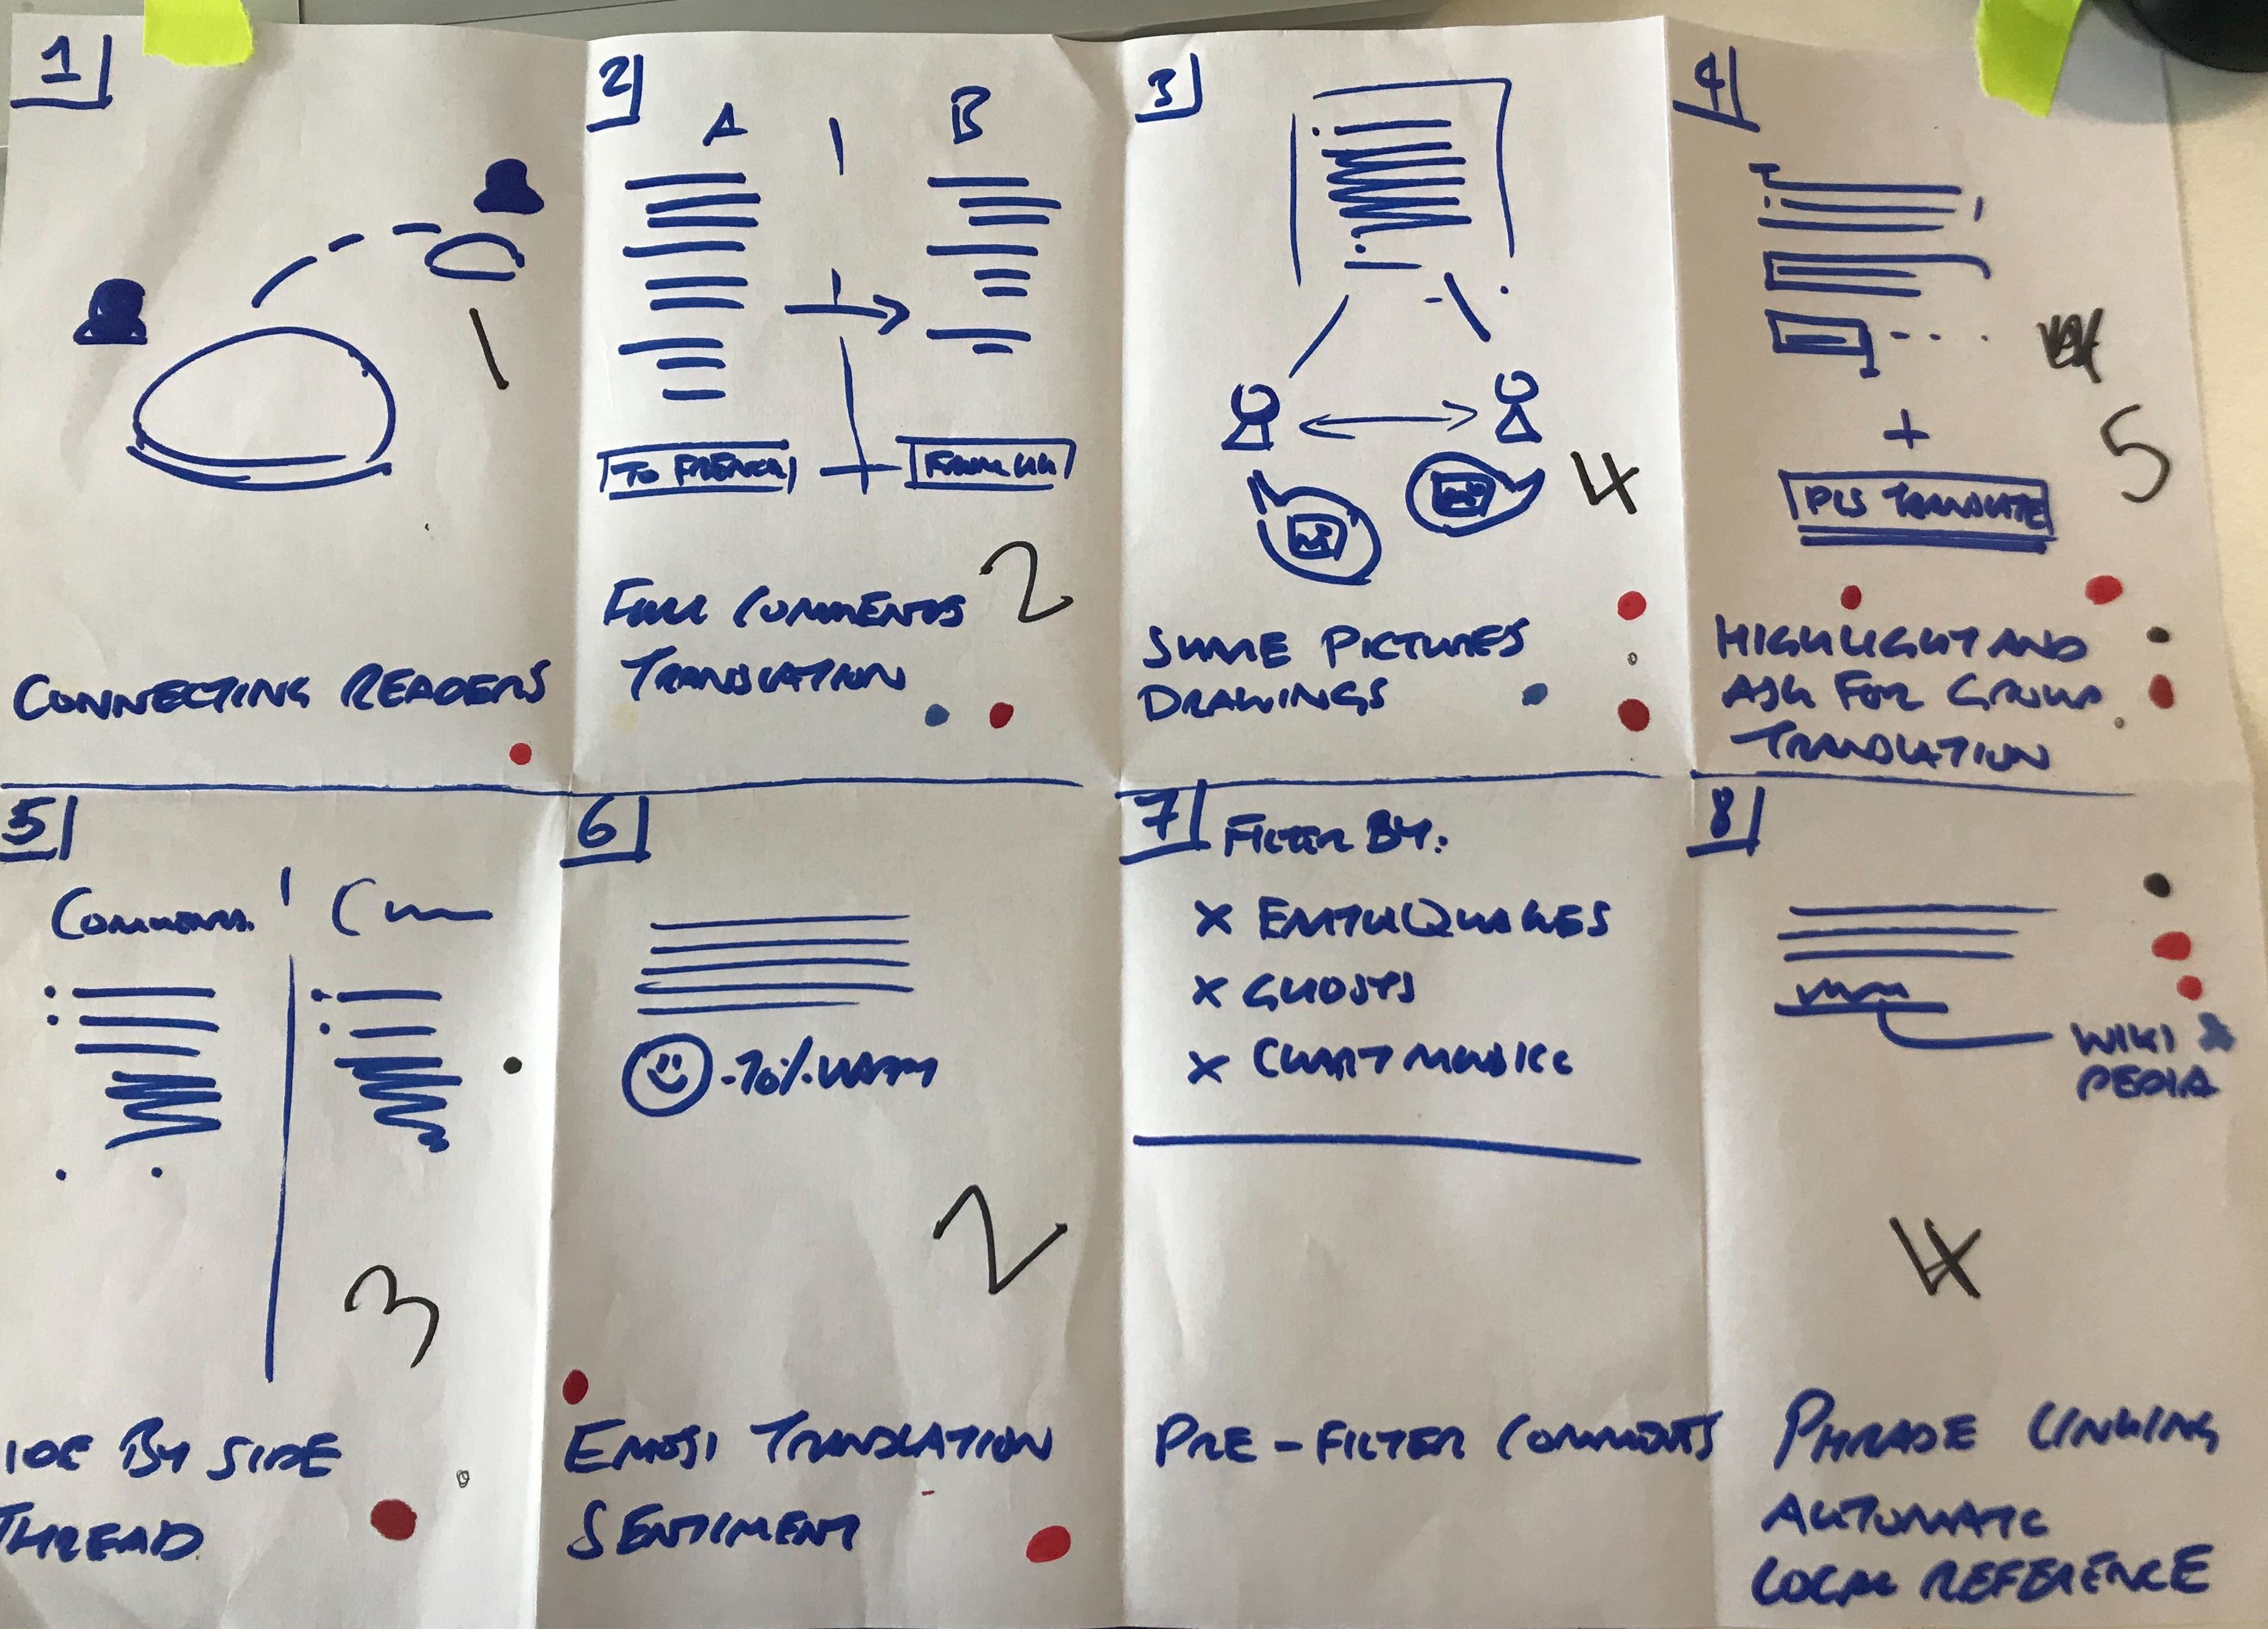 1
1
CONNECTING READERS
2
A B
TO FRENCH
FULL COMMENTS
2
TRANSLATION
3
4
SHARE PICTURES
DRAWINGS
4
+
5
PLS TRANSLATE
HIGHLIGHT AND
ASK FOR GROUP
TRANSLATION
5
COMMENTS
3
IDE BY SIDE
THREAD
6
2
EMOJI TRANSLATION
SENTIMENT
7 FILTER BY:
X EARTHQUAKES
X GHOSTS
X CHART MUSIC
PRE-FILTER COMMENTS
8
WIKI
PEDIA
4
PHRASE LINKING
AUTOMATIC
LOCAL REFERENCE